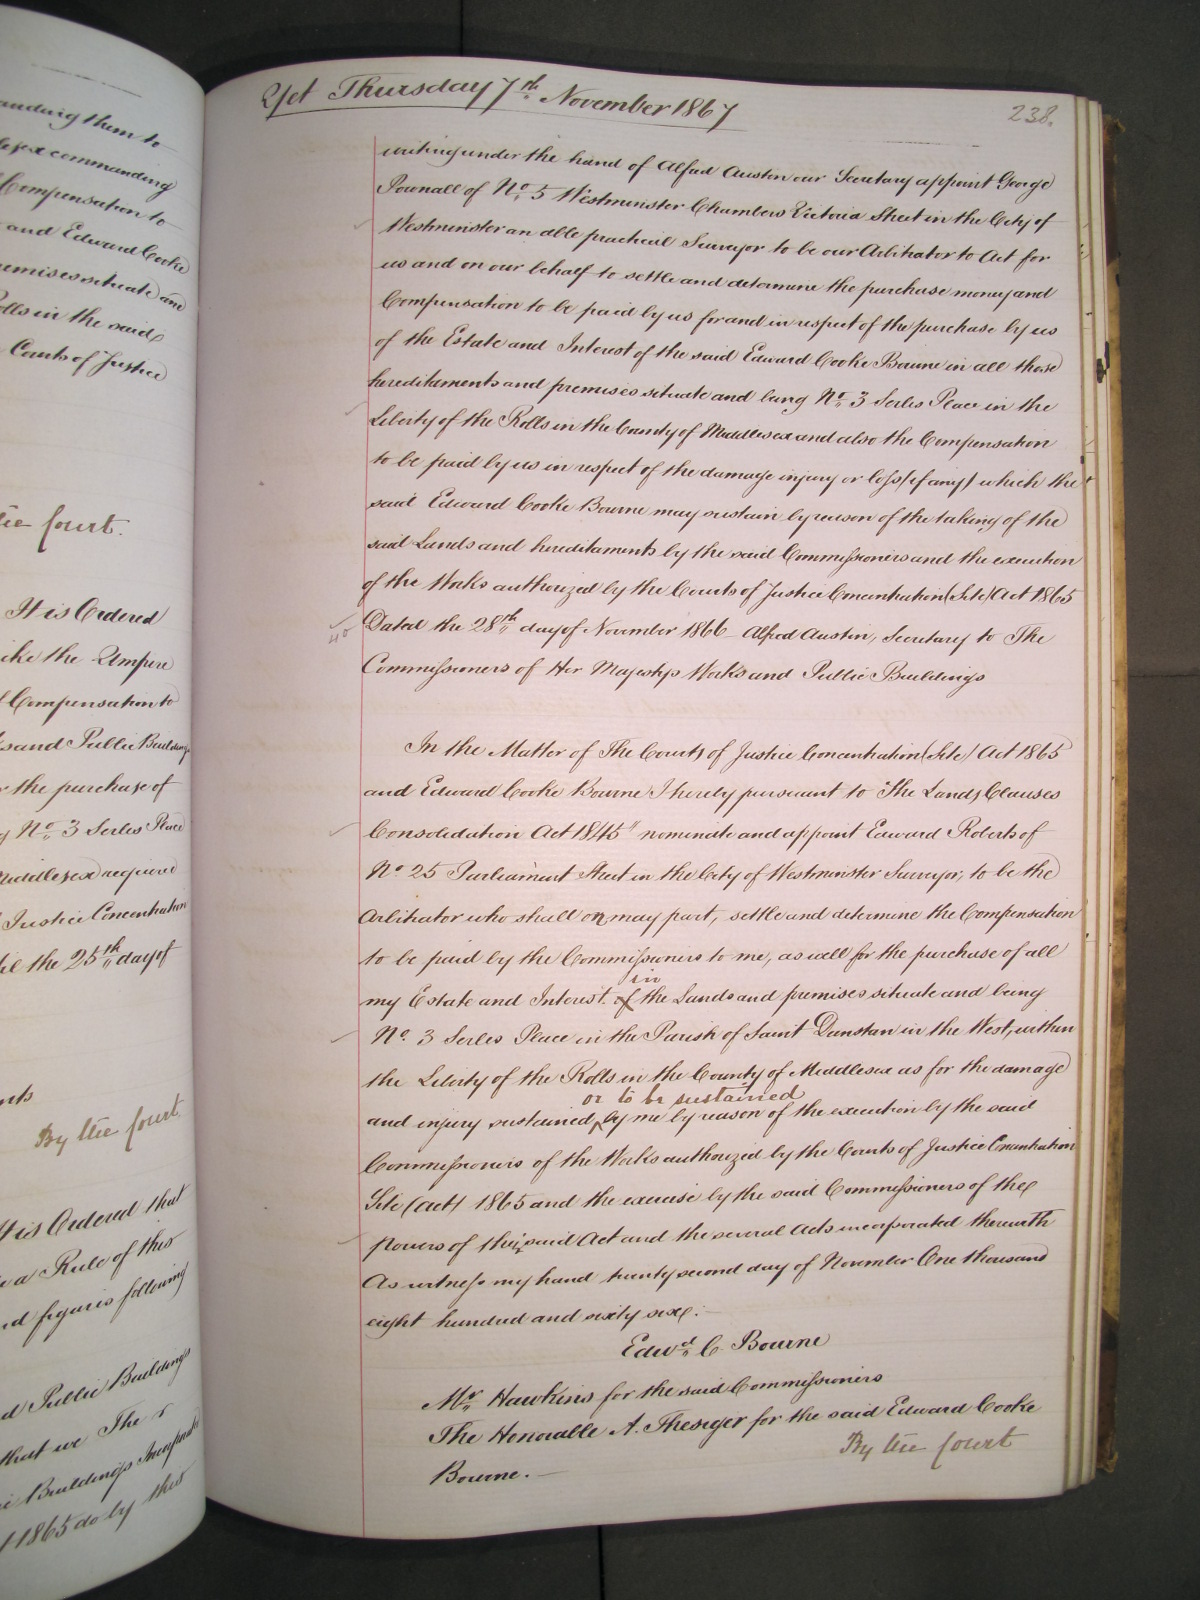 anding them to
commanding
Compensation to
and Edward Cooke
premises situate and
Rolls in the said
Courts of Justice
the Court.
It is Ordered
the Umpire
Compensation to
and Public Buildings
the purchase of
No. 3 Serles Place
Middlesex required
Justice Concentration
the 25th day of
By the Court
It is Ordered that
a Rule of this
and figures following
and Public Buildings
that we The
Buildings Incorporated
1865 do by this
Yet Thursday 7th November 1867
238.
writing under the hand of Alfred Austin our Secretary appoint George
Pownall of No. 5 Westminster Chambers Victoria Street in the City of
Westminster an able practical Surveyor to be our Arbitrator to Act for
us and on our behalf to settle and determine the purchase money and
Compensation to be paid by us for and in respect of the purchase by us
of the Estate and Interest of the said Edward Cooke Bourne in all those
hereditaments and premises situate and being No. 3 Serles Place in the
Liberty of the Rolls in the County of Middlesex and also the Compensation
to be paid by us in respect of the damage injury or loss (if any) which the
said Edward Cooke Bourne may sustain by reason of the taking of the
said Lands and hereditaments by the said Commissioners and the execution
of the Works authorized by the Courts of Justice Concentration (Site) Act 1865
Dated the 28th day of November 1866 – Alfred Austin, Secretary to The
Commissioners of Her Majestys Works and Public Buildings
In the Matter of The Courts of Justice Concentration (Site) Act 1865
and Edward Cooke Bourne I hereby pursuant to "The Lands Clauses
Consolidation Act 1845" nominate and appoint Edward Roberts of
No. 25 Parliament Street in the City of Westminster Surveyor, to be the
Arbitrator who shall on my part, settle and determine the Compensation
to be paid by the Commissioners to me, as well for the purchase of all
in
my Estate and Interest of the Lands and premises situate and being
No. 3 Serles Place in the Parish of Saint Dunstan in the West, within
the Liberty of the Rolls in the County of Middlesex as for the damage
or to be sustained
and injury sustained by me by reason of the execution by the said
Commissioners of the Works authorized by the Courts of Justice Concentration
Site (Act) 1865 and the exercise by the said Commissioners of the
powers of the said Act and the several Acts incorporated therewith
As witness my hand twenty second day of November One thousand
eight hundred and sixty six: –
Edwd. C Bourne
Mr. Hawkins for the said Commissioners
The Honorable A. Thesiger for the said Edward Cooke
Bourne. –
By the Court